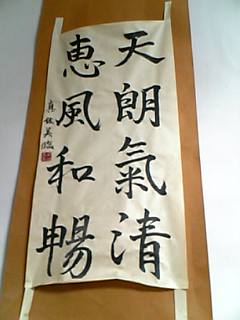 天朗氣清
恵風和暢